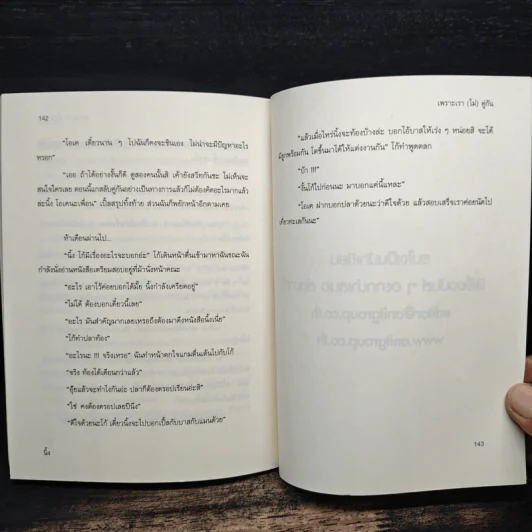 142
"โอเค เดี๋ยวนาน ๆ ไปฉันก็คงจะชินเอง ไม่น่าจะมีปัญหาอะไร
หรอก"
"เออ ถ้าได้อย่างงั้นก็ดี ดูสองคนนั้นสิ เค้ายังสวีทกันซะ ไม่เห็นจะ
สนใจใครเลย ตอนนี้แกสลับคู่กันอย่างเป็นทางการแล้วก็ไม่ต้องคิดอะไรมากแล้ว
ล่ะนิ้ง โอเคนะเพื่อน" เปิ้ลสรุปทั้งท้าย ส่วนฉันก็พยักหน้าอีกตามเคย
ห้าเดือนผ่านไป...
"นิ้ง โก้มีเรื่องอะไรจะบอกอ่ะ" โก้เดินหน้าตื่นเข้ามาหาฉันขณะฉัน
กำลังนั่งอ่านหนังสือเตรียมสอบอยู่ที่ม้านั่งหน้าคณะ
"อะไร เอาไว้ค่อยบอกได้มั้ย นิ้งกำลังเครียดอยู่"
"ไม่ได้ ต้องบอกเดี๋ยวนี้เลย"
"อะไร มันสำคัญมากเลยเหรอถึงต้องมาดึงหนังสือนิ้งเนี่ย"
"โก้ทำปลาท้อง"
"อะไรนะ !!! จริงเหรอ" ฉันทำหน้าตกใจแกมตื่นเต้นไปกับโก้
"จริง ท้องได้เดือนกว่าแล้ว"
"อุ๊ยแล้วจะทำไงกันอ่ะ ปลาก็ต้องดรอปเรียนอ่ะสิ"
"ใช่ คงต้องดรอปเลยปีนึง"
"ดีใจด้วยนะโก้ เดี๋ยวนิ้งจะไปบอกเปิ้ลกับบาสกับแมนด้วย"
นิ้ง
เพราะเรา (ไม่) คู่กัน
"แล้วเมื่อไหร่นิ้งจะท้องบ้างล่ะ บอกไอ้บาสให้เร่ง ๆ หน่อยสิ จะได้
มีลูกพร้อมกัน โตขึ้นมาได้ให้แต่งงานกัน" โก้ทำพูดตลก
"บ้า !!!"
"งั้นโก้ไปก่อนนะ มาบอกแค่นี้แหละ"
"โอเค ฝากบอกปลาด้วยนะว่าดีใจด้วย แล้วสอบเสร็จเราค่อยนัดไป
เที่ยวทะเลกันนะ"
143